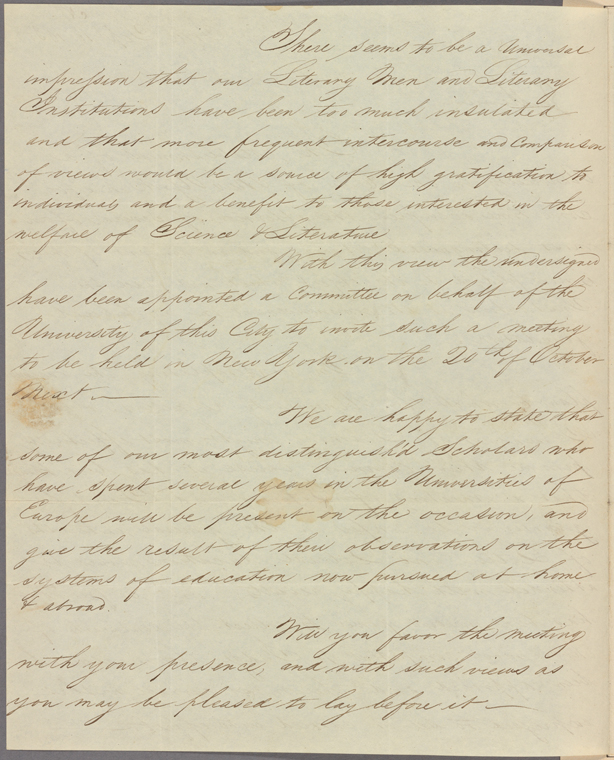 There seems to be a Universal
impression that our Literary Men and Literary
Institutions have been too much insulated
and that more frequent intercourse and Comparison
of views would be a source of high gratification to
individuals and a benefit to those interested in the
welfare of Science & Literature
With this view the undersigned
have been appointed a Committee on behalf of the
University of this City to invite such a meeting
to be held in New York on the 20th of October
Next —
We are happy to state that
some of our most distinguish'd Scholars who
have spent several years in the Universities of
Europe will be present on the occasion, and
give the result of their observations on the
systems of education now pursued at home
& abroad.
Will you favor the meeting
with your presence, and with such views as
you may be pleased to lay before it —